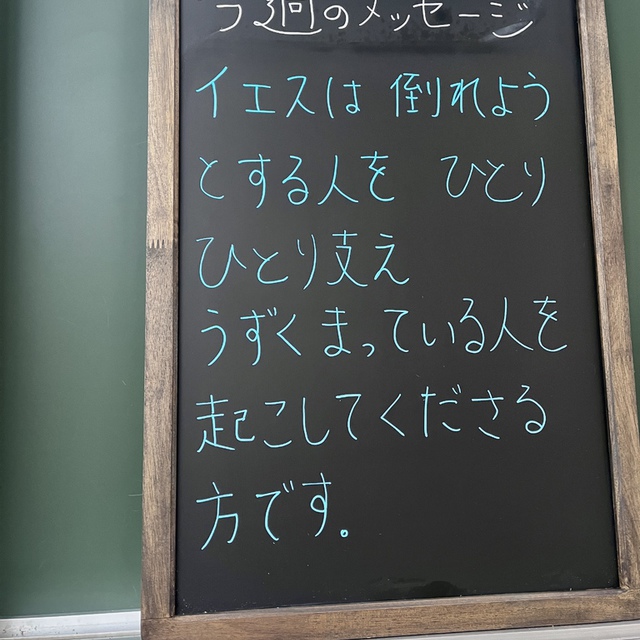 今週のメッセージ
イエスは 倒れよう
とする人を ひとり
ひとり支え
うずくまっている人を
起こしてくださる
方です。